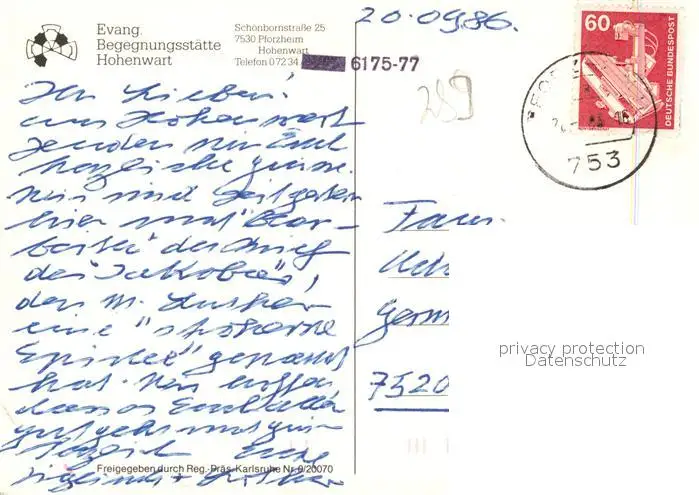 Evang.
Begegnungsstätte
Hohenwart
Schönbornstraße 25
7530 Pforzheim
Hohenwart
Telefon 0 72 34
6175-77
20.09.86.
60
DEUTSCHE BUNDESPOST
753
289
Ihr Lieben!
aus Hohenwart
senden wir Euch
herzliche Grüsse.
Wir sind seit gestern
hier und "bear-
beiten" den Brief
des "Jakobus",
den M. Luther
eine "stroherne
Epistel" genannt
hat. Wir hoffen
dass es Euch allen
gut geht und
Eure
Fam.
Germ
7520
privacy protection
Datenschutz
Freigegeben durch Reg.-Präs. Karlsruhe Nr. 0/20070